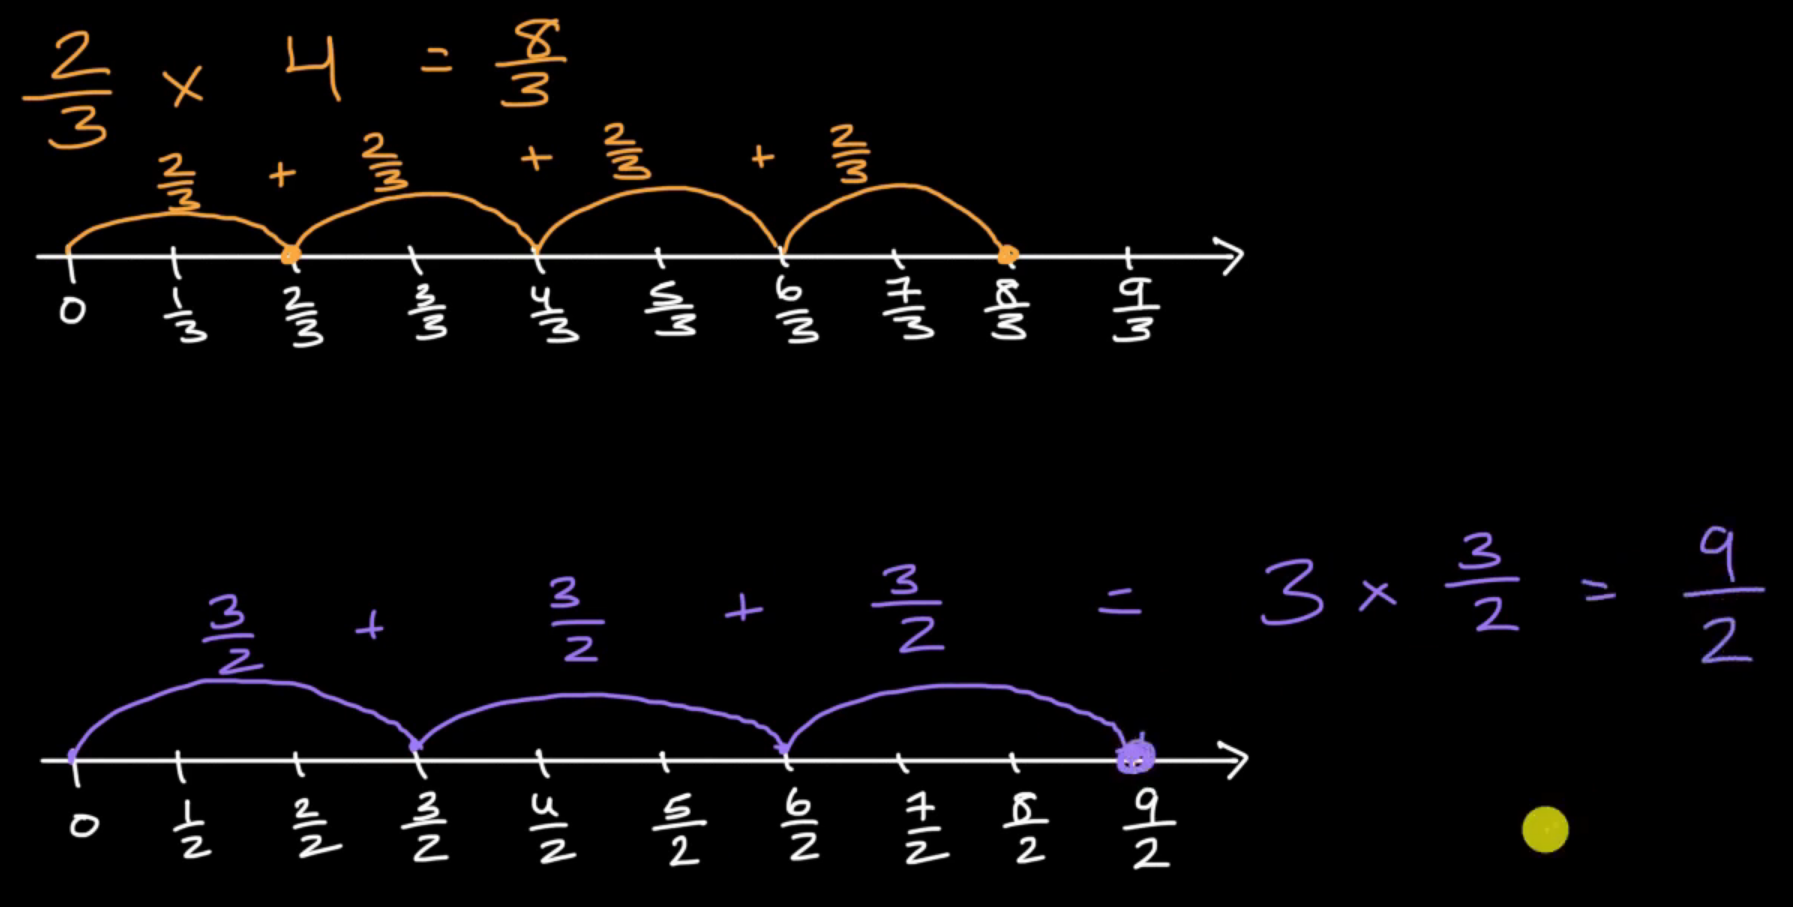 2/3 × 4 = 8/3
2/3 + 2/3 + 2/3 + 2/3
0 1/3 2/3 3/3 4/3 5/3 6/3 7/3 8/3 9/3
3/2 + 3/2 + 3/2 = 3 × 3/2 = 9/2
0 1/2 2/2 3/2 4/2 5/2 6/2 7/2 8/2 9/2